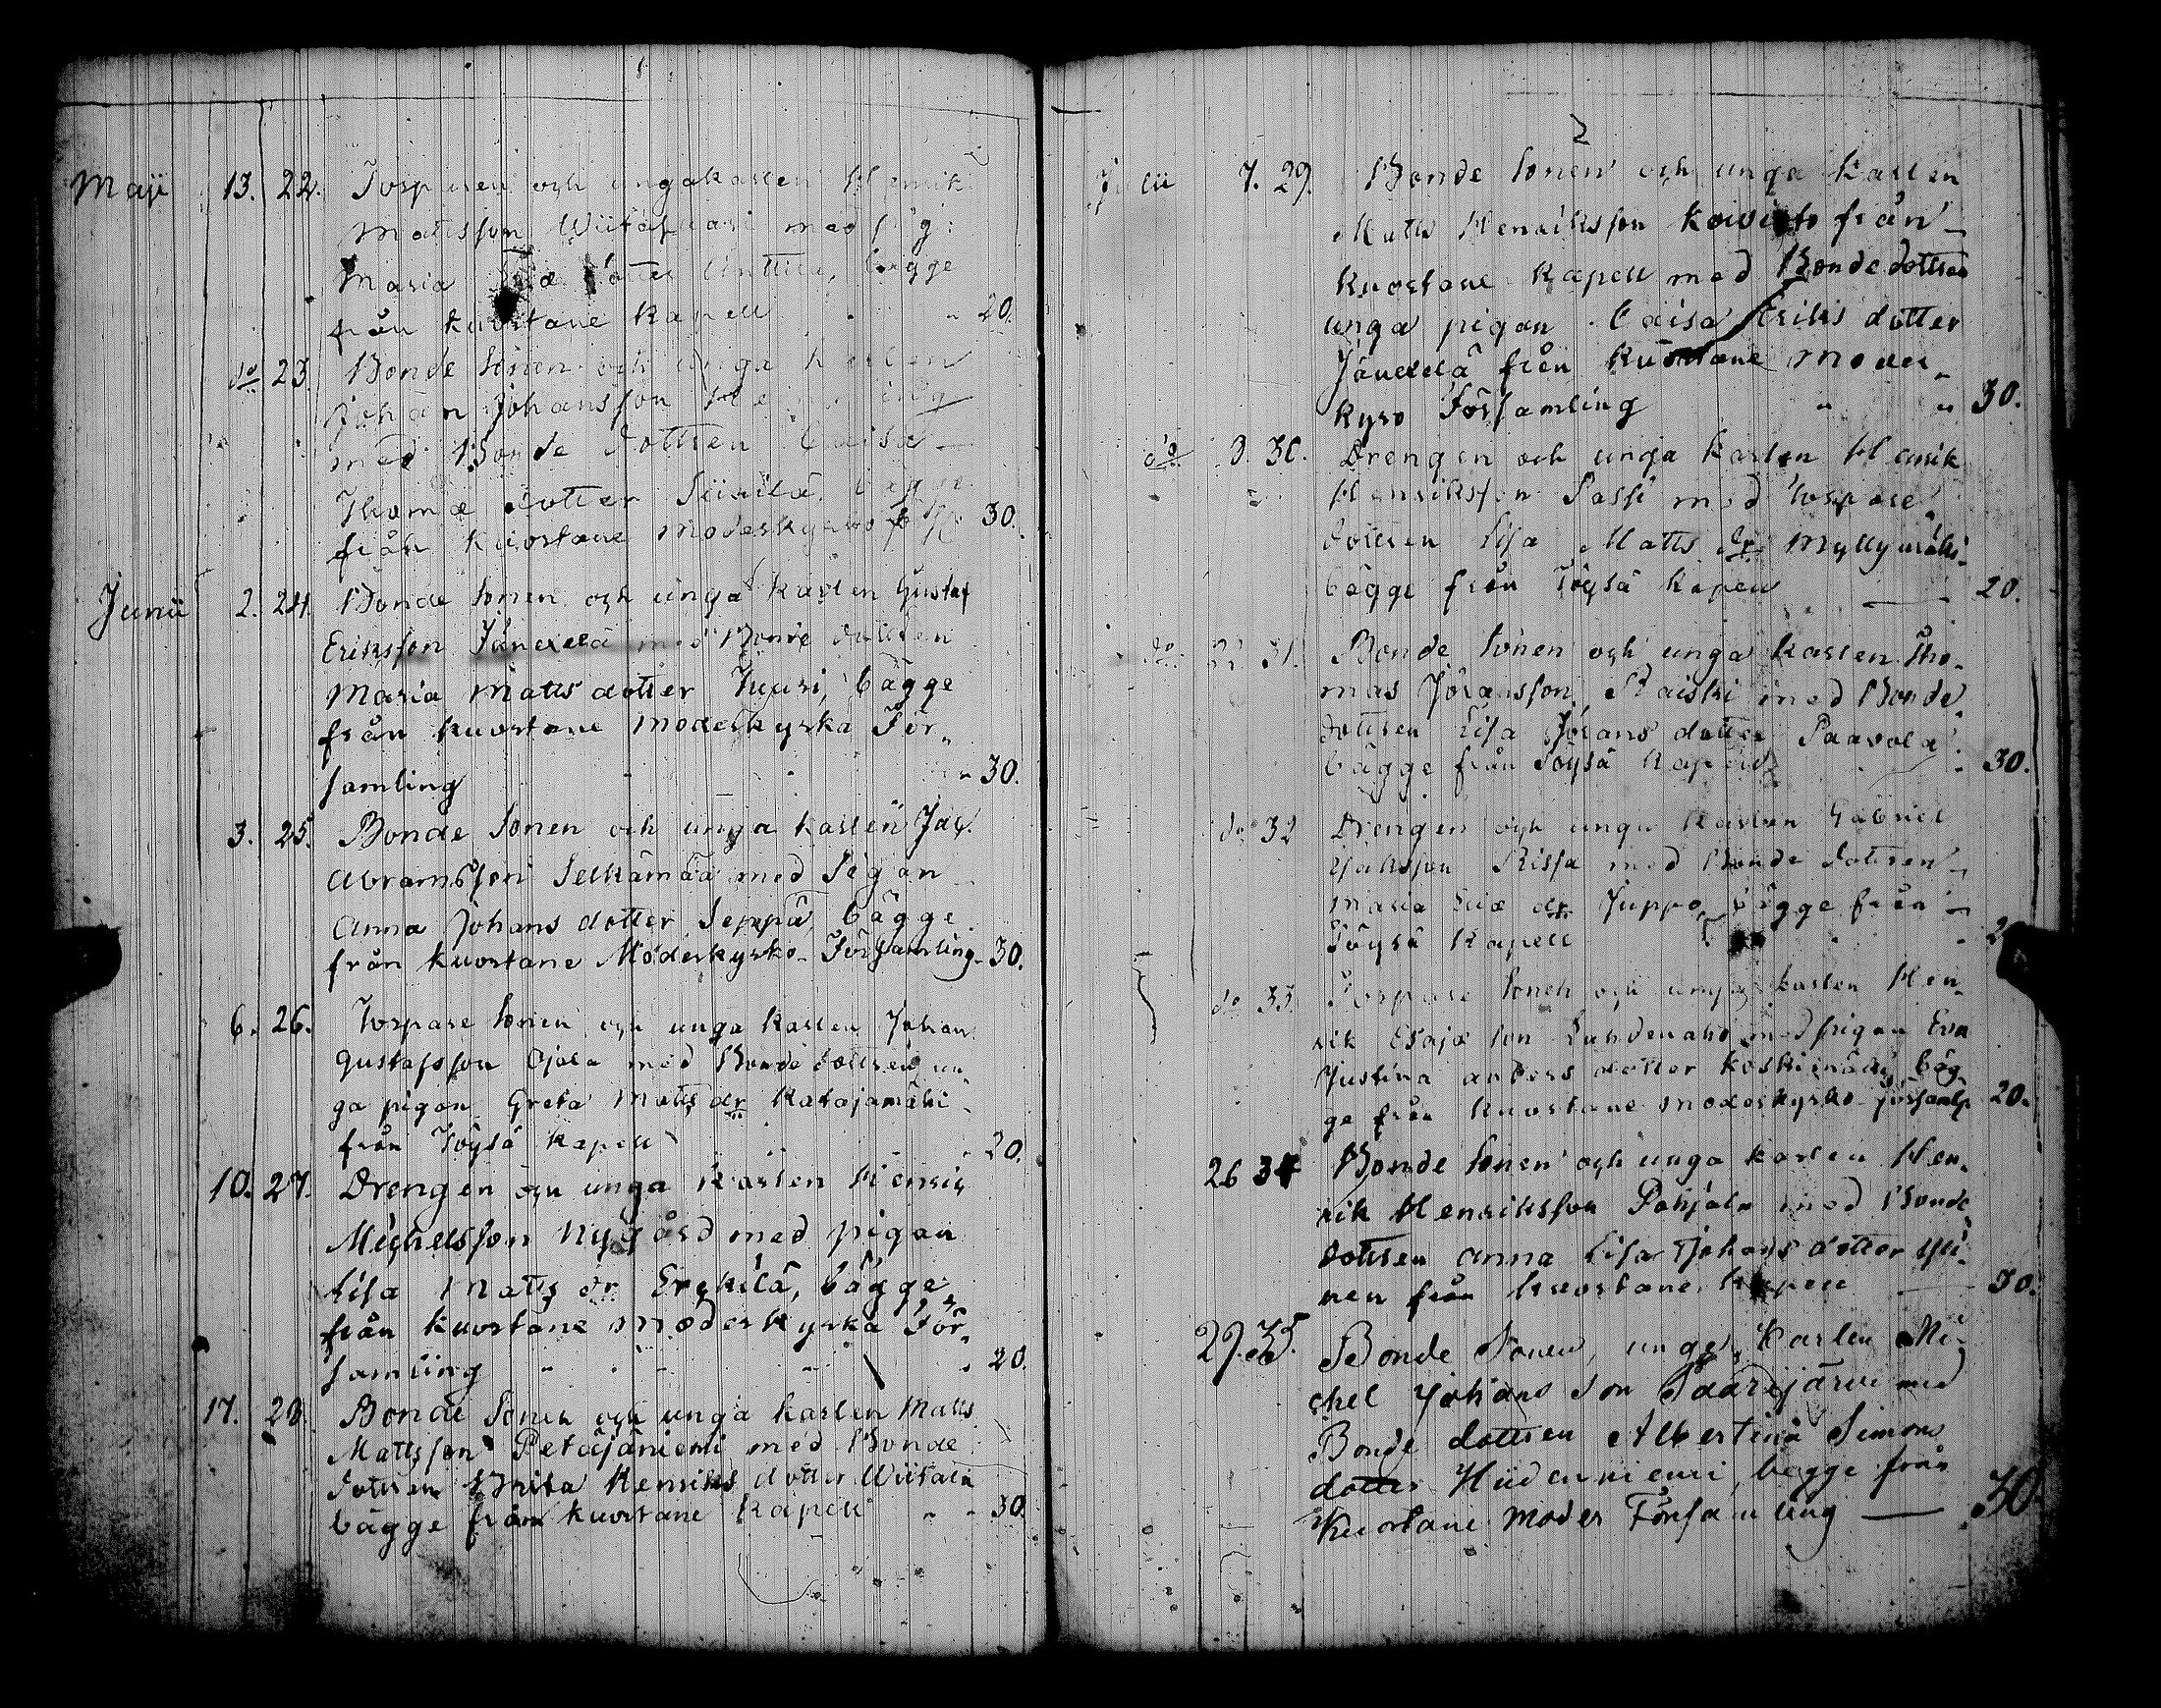 Maji 13. 22. Torparen och unga karlen Henrik
Mattsson Wiitasaari med pig:
Maria dotter Anttila, bägge
från Kuortane Kapell 20.
do 23. Bonde Sonen och unga karlen
Johan Johansson
med Bonde dottren Caisa
Thomæ dotter Siirilä, bägge
från Kuortane moderkyrko 30.
Junii 2. 24. Bonde Sonen och unga karlen Gustaf
Eriksson Jänexlä med Bonde dottren
Maria Matts dotter Tuuri, bägge
från Kuortane moderkyrka För-
samling 30.
3. 25. Bonde Sonen och unga karlen Jac.
Abramsson Selkämää med Pigan
Anna Johans dotter Seppä, bägge
från Kuortane Moderkyrko Församling 30.
6. 26. Torpare Sonen och unga karlen Johan
Gustafsson Ojala med Bonde dottren un-
ga pigan Greta Matts dr Katajamäki
från Töysä Kapell 20.
10. 27. Drengen och unga Karlen Henric
Michelsson Nygård med pigan
Lisa Matts dr Erkkilä, bägge
från Kuortane Moderkyrka För-
samling 20.
17. 28. Bonde Sonen och unga karlen Matts
Mattsson Petäjäniemi med Bonde
dottren Brita Henriks dotter Wiitala
bägge från Kuortane Kapell 30.
2
Julii 7. 29. Bonde Sonen och unga karlen
Matts Henriksson Koivisto från
Kuortane Kapell med Bonde dottren
unga pigan Caisa Eriks dotter
Jänexlä från Kuortane Moder-
kyro Församling 30.
do 30. Drengen och unga karlen Henrik
Henriksson Passi med Torpare
dottren Lisa Matts dr Myllymäki
bägge från Töysä Kapell 20.
do 31. Bonde Sonen och unga karlen Tho-
mas Jöransson Raiski med Bonde
dottren Lisa Jörans dotter Paavola
bägge från Töysä Kapell 30.
do 32 Drengen och unga karlen Gabriel
Rissa med Bonde dottren
Maria dr Juppo, bägge från
Töysä Kapell
do 33. Torpare Sonen och unga karlen Hen-
rik Esaiæ son Luhdenaho med pigan Eva
Justina Anders dotter Koskimäki, bäg-
ge från Kuortane moderkyrko 20.
26 34 Bonde Sonen och unga karlen Hen-
rik Henriksson Pohjola med Bonde
dottren Anna Lisa Johans dotter Yli-
nen från Kuortane Kapell 30.
29. 35. Bonde Sonen, unge Karlen Mi-
chel Johans Son Saarijärvi med
Bonde dottren Albertina Simons
dotter Hiidenniemi, begge från
Kuortane Moder Församling 30.